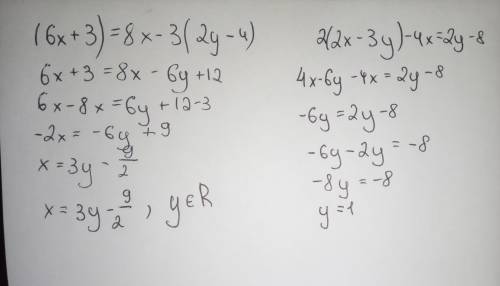 (6x+3)=8x-3(2y-4)
6x+3=8x-6y+12
6x-8x=6y+12-3
-2x=-6y+9
x=3y-9/2
x=3y-9/2, y∈R
2(2x-3y)-4x=2y-8
4x-6y-4x=2y-8
-6y=2y-8
-6y-2y=-8
-8y=-8
y=1